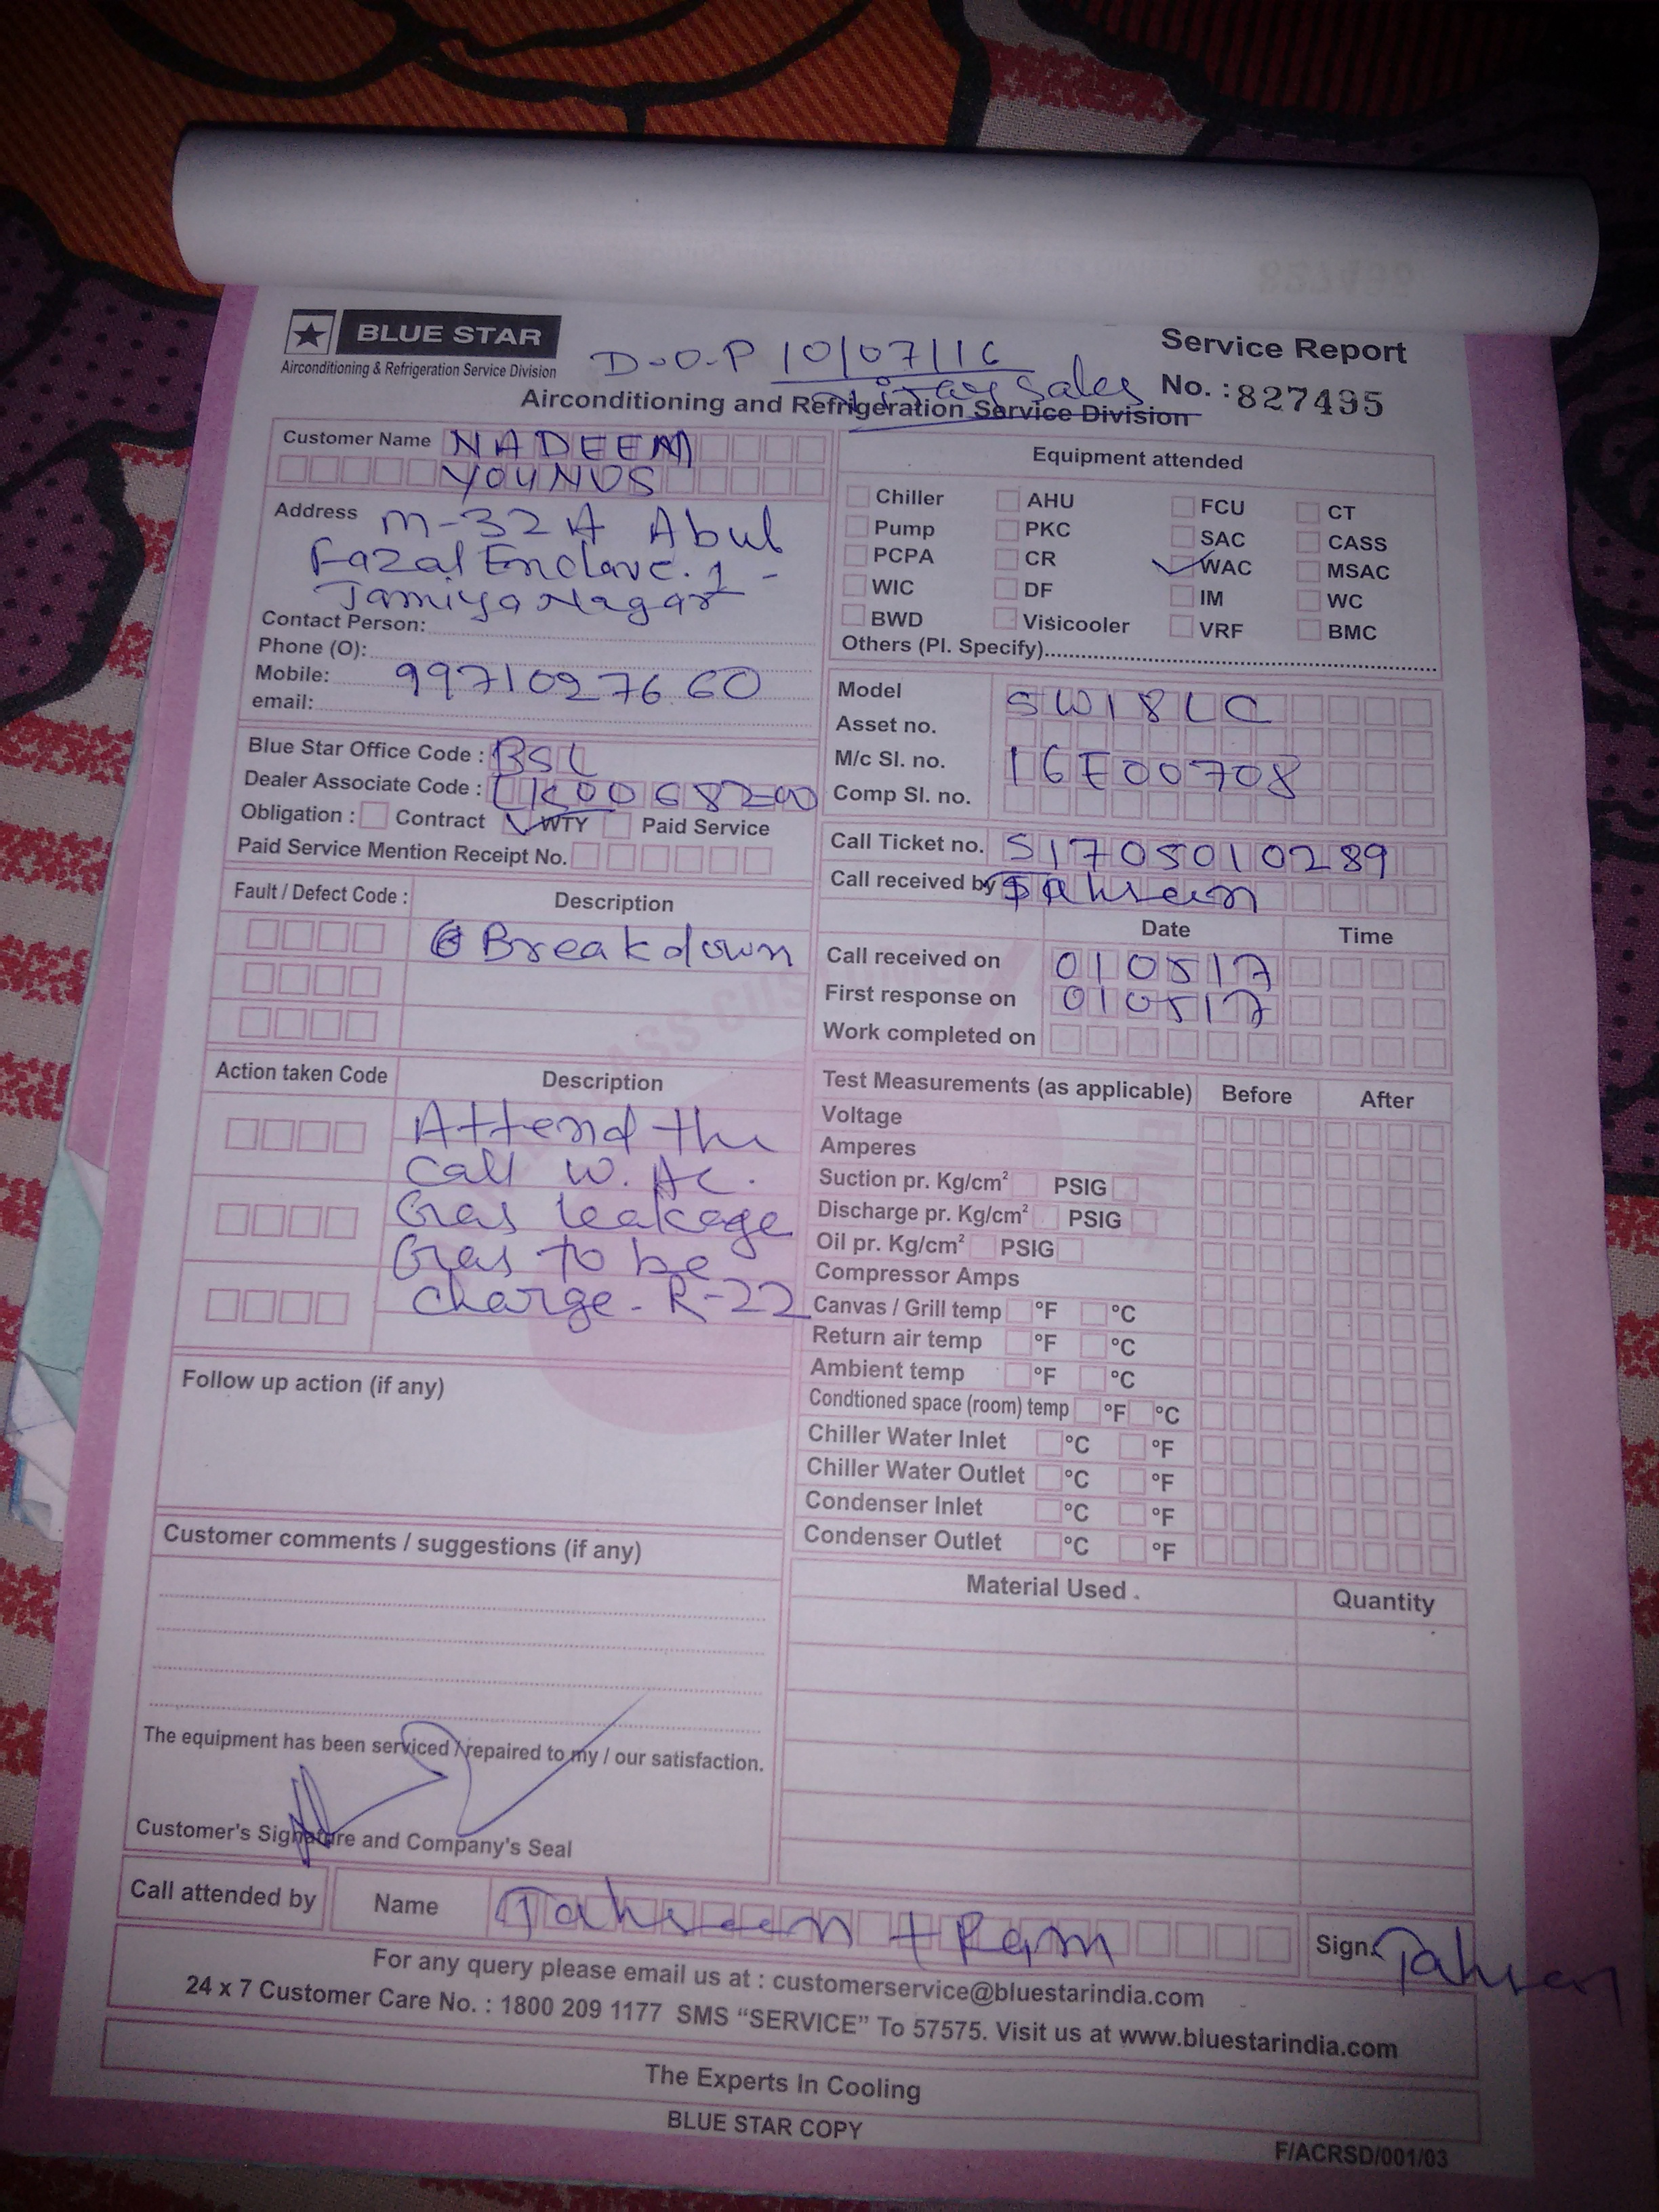 BLUE STAR
Airconditioning & Refrigeration Service Division
D-O-P 10/07/16
Sales
Service Report
No. : 827435
Airconditioning and Refrigeration Service Division
Customer Name NADEEM
YOUNUS
Address M-32 A Abul
Fazal Enclave. 1 -
Jamiya Nagar
Contact Person:
Phone (O):
Mobile: 9971027660
email:
Equipment attended
Chiller AHU FCU CT
Pump PKC SAC CASS
PCPA CR WAC MSAC
WIC DF IM WC
BWD Visicooler VRF BMC
Others (Pl. Specify)
Model SW18LC
Asset no.
M/c Sl. no. 16E00708
Comp Sl. no.
Blue Star Office Code : BSL
Dealer Associate Code :
Obligation : Contract WTY Paid Service
Paid Service Mention Receipt No.
Call Ticket no. S1705010289
Call received by Tahseen
Fault / Defect Code : Description
Breakdown
Date Time
Call received on 010517
First response on 010517
Work completed on
Action taken Code Description
Attend the
Call W. AC.
Gas leakage
Gas to be
charge - R-22
Test Measurements (as applicable) Before After
Voltage
Amperes
Suction pr. Kg/cm² PSIG
Discharge pr. Kg/cm² PSIG
Oil pr. Kg/cm² PSIG
Compressor Amps
Canvas / Grill temp °F °C
Return air temp °F °C
Ambient temp °F °C
Condtioned space (room) temp °F °C
Chiller Water Inlet °C °F
Chiller Water Outlet °C °F
Condenser Inlet °C °F
Condenser Outlet °C °F
Follow up action (if any)
Customer comments / suggestions (if any)
Material Used . Quantity
The equipment has been serviced / repaired to my / our satisfaction.
Customer's Signature and Company's Seal
Call attended by Name Tahseen + Ram Sign. Tahseen
For any query please email us at : customerservice@bluestarindia.com
24 x 7 Customer Care No. : 1800 209 1177 SMS “SERVICE” To 57575. Visit us at www.bluestarindia.com
The Experts In Cooling
BLUE STAR COPY
F/ACRSD/001/03